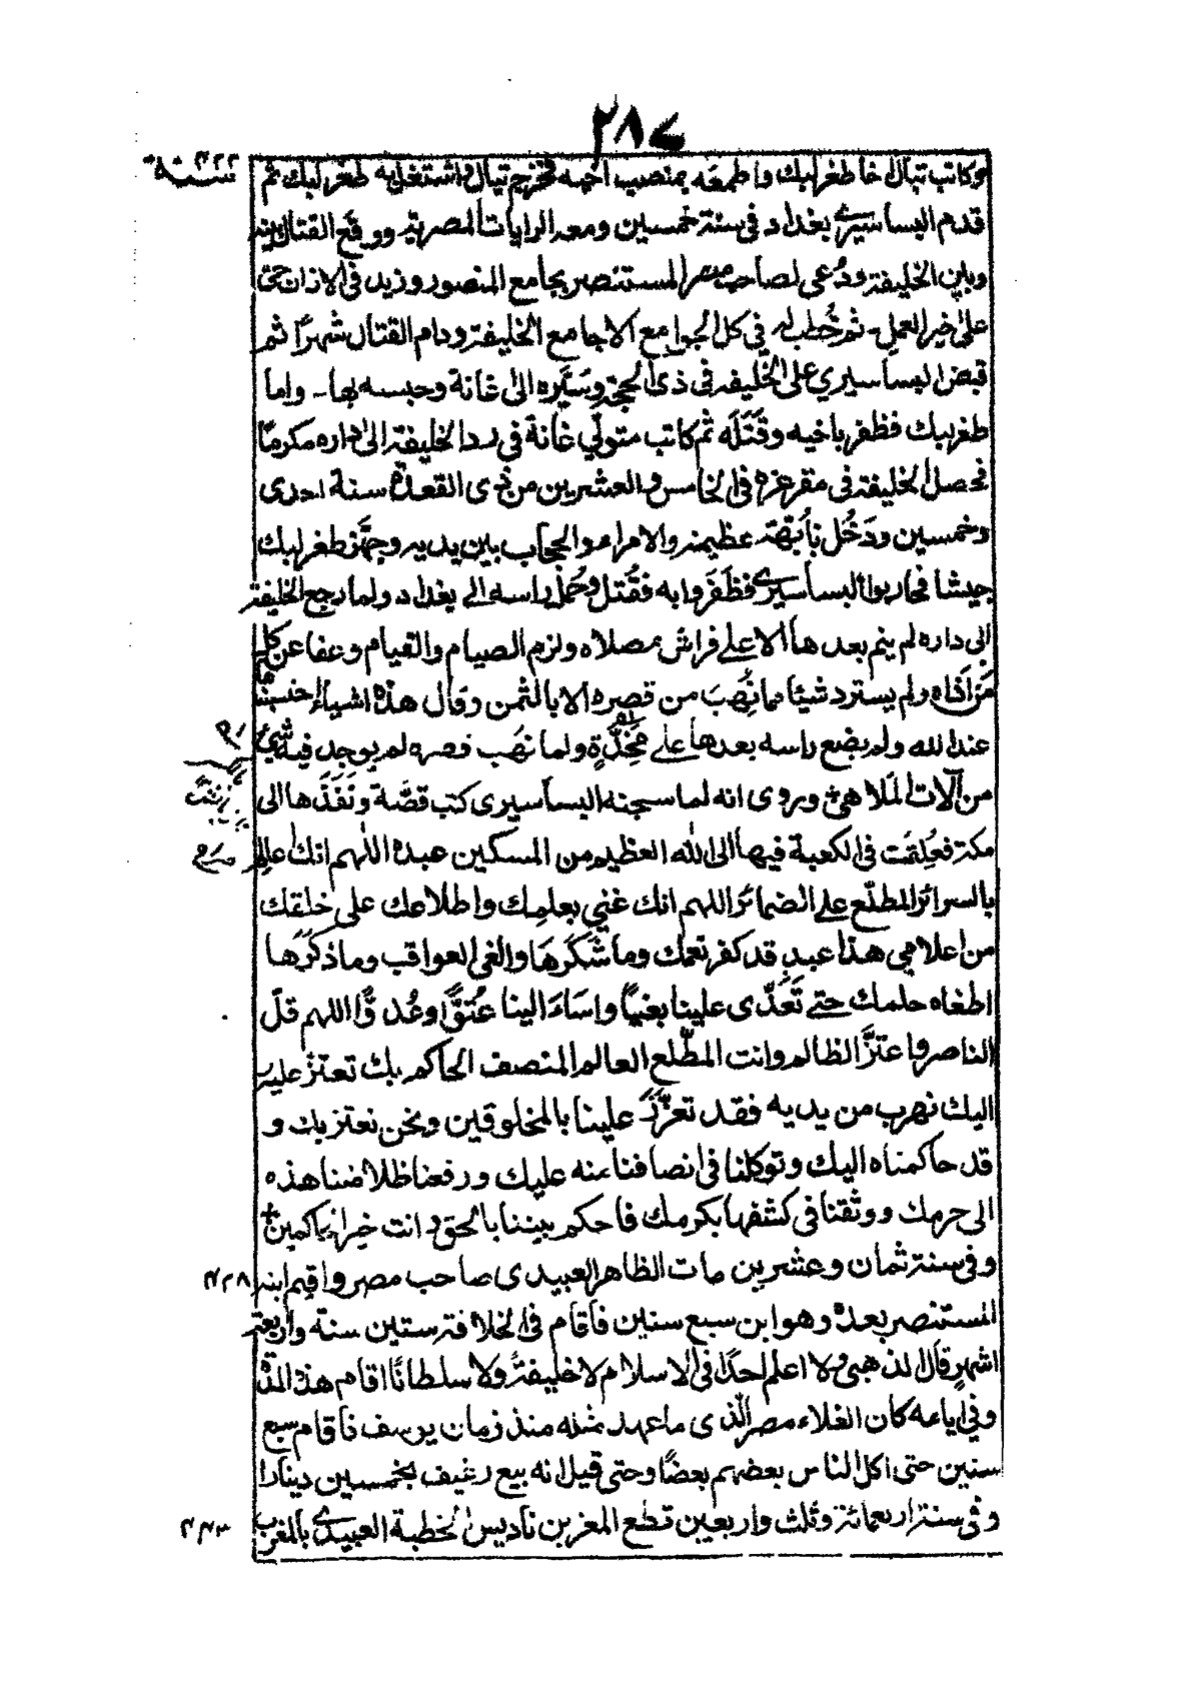 ٢٨٧
وكاتب تبال اخا طغرلبك واطمعه بمنصب اخيه فخرج تبال واشتغل به طغرلبك ثم
سنة ٤٢٢
قدم البساسيري بغداد في سنة خمسين ومعه الرايات المصرية ووقع القتال بينه
وبين الخليفة ودُعي لصاحب مصر المستنصر بجامع المنصور وزيد في الاذان حي
على خير العمل۔ ثم خُطب له في كل الجوامع الا جامع الخليفة ودام القتال شهرًا ثم
قبض البساسيري على الخليفه في ذى الحجة وسَيَّره الى غانة وحبسه بها۔ واما
طغرلبك فظفر باخيه وقَتَلَه ثم كاتب متولّي غانة في رد الخليفة الى داره مكرمًا
فحصل الخليفة في مقر عزه في الخامس والعشرين من ذى القعدة سنة احدى
وخمسين ودَخُل بأُبّهة عظيمة والامراء والحجاب بين يديه وجهَّز طغرلبك
جيشا فحاربوا البساسيرى فظَفَروا به فقُتل وحُمل راسه الى بغداد ولما رجع الخليفة
الى داره لم ينم بعدها الا على فراش مصلاه ولزم الصيام والقيام وعفا عن كل
مَن اٰذاه ولم يسترد شيئا مما نُهِبَ من قصره الا بالثمن وقال هذه اشياء احتسبناها
عند الله ولم يضع راسه بعدها على مِخَدَّةٍ ولما نهب قصره لم يوجد فيه شيء
من آلات الملاهى وروى انه لما سجنه البساسيرى كتب قصّة ونَفَذَها الى
مكة فعُلِقَت في الكعبة فيها الى الله العظيم من المسكين عبده اللهم انك عالم
بالسرائر المطلّع على الضمائر اللهم انك غني بعلمك واطلاعك على خلقك
من اعلامي هذا عبد قد كفر نعمك وما شَكَرَهَا والغى العواقب وما ذكرها
اطغاه حلمك حتى تَعَدّى علينا بغيًا واسَاءَ الينا عُتوًّا وعُدوًّا اللهم قلّ
الناصر واعتزَّ الظالم وانت المطّلع العالم المنصف الحاكم بك تعتز عليه و
اليك نهرب من يديه فقد تعزَّزَ علينا بالمخلوقين ونحن نعتز بك و
قد حاكمناه اليك وتوكلنا في انصافنا منه عليك ورفعنا ظلامتنا هذه
الى حرمك ووثقنا في كشفها بكرمك فاحكم بيننا بالحق وانت خير الحاكمين
وفي سنة ثمان وعشرين مات الظاهر العبيدى صاحب مصر واقيم ابنه
٤٢٨
المستنصر بعده وهو ابن سبع سنين فاقام في الخلافة ستين سنة واربعة
اشهرٍ قال الذهبى ولا اعلم احدًا في الاسلام لا خليفةً ولا سلطانًا اقام هذه المدة
وفي ايامه كان الغلاء بمصر الّذى ما عهد مثله منذ زمان يوسف فاقام سبع
سنين حتى اكل الناس بعضهم بعضًا وحتى قيل انه بيع رغيف بخمسين دينارا
وفي سنة اربعمائة وثلث واربعين قطع المعز بن ناديس الخطبة العبيدى بالمغرب
٤٤٣